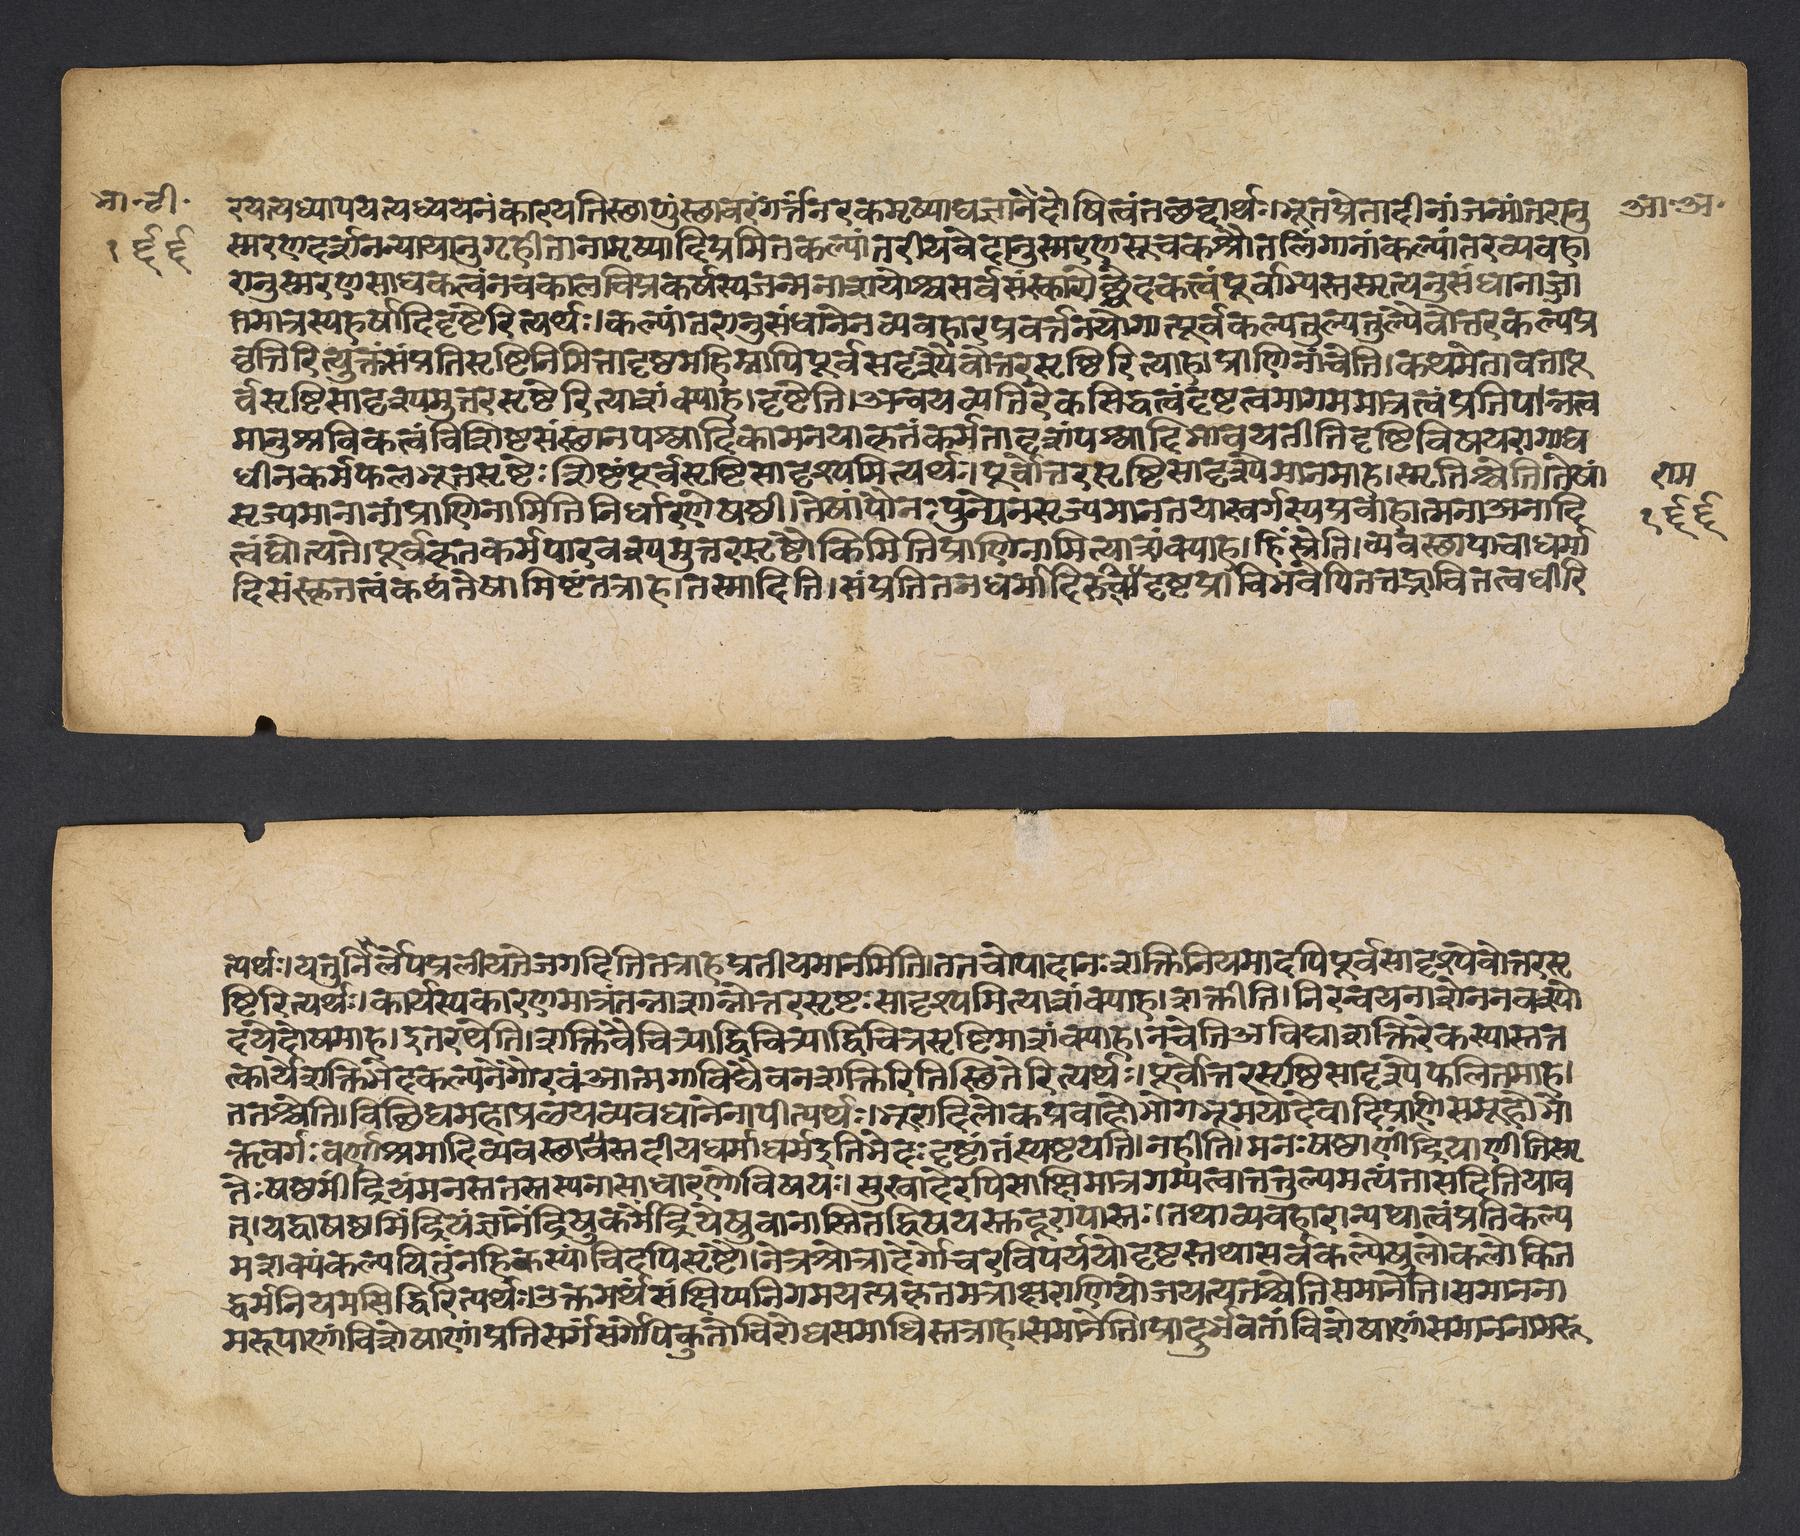 भा॰टी॰
१६६
आ॰अ॰
रयत्यध्यापयत्यध्ययनंकारयतिस्छाणुंस्छावरंगर्त्तंनरकमृष्याद्यज्ञानेदोषित्वंतछब्दार्थः।भूतप्रेतादीनांजन्मांतरानु
स्मरणदर्शनन्यायानुगृहीतानामृष्यादिप्रमितकल्पांतरीयवेदानुस्मरणसूचकश्रौतलिंगानांकल्पांतरव्यवहा
रानुस्मरणसाधकत्वंनचकालविप्रकर्षस्यजन्मनाशयोश्चसर्वसंस्कारोच्छेदकत्वंपूर्वाभ्यस्तस्मृत्यनुसंधानाज्जा
तमात्रस्यहर्षादिदृष्टेरित्यर्थः।कल्पांतरानुसंधानेनव्यवहारप्रवर्त्तनयोगात्पूर्वकल्पतुल्यतुल्येवोत्तरकल्पप्र
वृत्तिरित्युक्तंसंप्रतिसृष्टिनिमित्तादृष्टमहिम्नापिपूर्वसदृश्येवोत्तरसृष्टिरित्याह।प्राणिनांचेति।कथमेतावतापू
र्वसृष्टिसादृश्यमुत्तरसृष्टेरित्याशंक्याह।दृष्टेति।अन्वयव्यतिरेकसिद्धत्वंदृष्टत्वमागममात्रत्वंप्रतिपात्तत्व
मानुश्रविकत्वंविशिष्टसंस्छानपश्वादिकामनयाकृतंकर्मतादृशंपश्वादिभावयतीतिदृष्टिविषयरागाद्य
धीनकर्मफलभूतसृष्टेःशिष्टंपूर्वसृष्टिसादृश्यमित्यर्थः।पूर्वोत्तरसृष्टिसादृश्येमानमाह।स्मृतिश्चेतितेषां
राम
सृज्यमानानांप्राणिनामितिनिर्धारणेषष्ठी।तेषांपौनःपुन्येनसृज्यमानतयास्वर्गस्यप्रवाहात्मनाअनादि
१६६
त्वंद्योत्यते।पूर्वकृतकर्मपारवश्यमुत्तरसृष्टौकिमितिप्राणिनामित्याशंक्याह।हिंस्रेति।व्यवस्छापाचाधर्मा
दिसंस्कृतत्वंकथंतेषामिष्टंतत्राह।तस्मादिति।संप्रतितनधर्मादिरूच्यादृष्टप्राग्विभवेपितत्तद्भावितत्वधीरि
त्यर्थः।यत्तुर्निर्लेपप्रलीयतेजगदितितत्राहप्रतीयमानमिति।ततचोपादानःशक्तिनियमादपिपूर्वसादृश्येवोत्तरसृ
ष्टिरित्यर्थः।कार्यस्यकारणमात्रंतन्नाशान्नोत्तरसृष्टःसादृश्यमित्याशंक्याह।शक्तीति।निरन्वयनाशेननवश्यो
दयंदोषमाह।इतरथेति।शक्तिवैचित्र्याद्विचित्र्याद्विचित्रसृष्टिमाशंक्याह।नचेतिअविद्याशक्तिरेकस्यास्तत्त
त्कार्यशक्तिभेदकल्पनेगौरवंआत्मगाविद्यैवनशक्तिरितिस्छितेरित्यर्थः।पूर्वोत्तरसृष्ठिसादृश्येफलितमाह।
ततश्चेति।विछिद्यमहाप्रळयव्यवधानेनापीत्यर्थः।भूरादिलोकप्रवाहोभोगभूमयोदेवादिप्राणिसमूहोभो
क्तृवर्गःवर्णाश्रमादिव्यवस्छावस्तदीयधर्माधर्मइतिभेदःदृष्टांतंस्पष्टयति।नहीति।मनःषष्ठाणींद्रियाणीतिस्मृ
तेःषष्ठमींद्रियंमनस्तत्तस्यनासाधारणोविषयः।सुखादेरपिसाक्षिमात्रगम्यत्वात्तत्तुल्यमत्यंतासदितियाव
त्।यद्वाषष्ठमिंद्रियंज्ञानेंद्रियुकर्मेंद्रियेषुवानास्तितद्विषयस्तदूरापास्तः।तथाव्यवहारान्यथात्वंप्रतिकल्प
मशक्यंकल्पयितुंनहिकस्यांचिदपिसृष्टौ।नेत्रश्रोत्रादेर्गोचरविपर्ययोदृष्टस्तथासर्वकल्पेषुलोकलौकित
द्धर्मनियमसिद्धिरित्यर्थः।उक्तमर्थंसंक्षिप्यनिगमयत्प्रकृतमत्राक्षराणियोजयत्यतश्चेतिसमानेति।समानना
मरूपाणांविशेषाणांप्रतिसर्गंसर्गेपिकुतोविरोधसमाधिस्तत्राह।समानेति।प्रादुर्भवतांविशेषाणंसमाननामरू